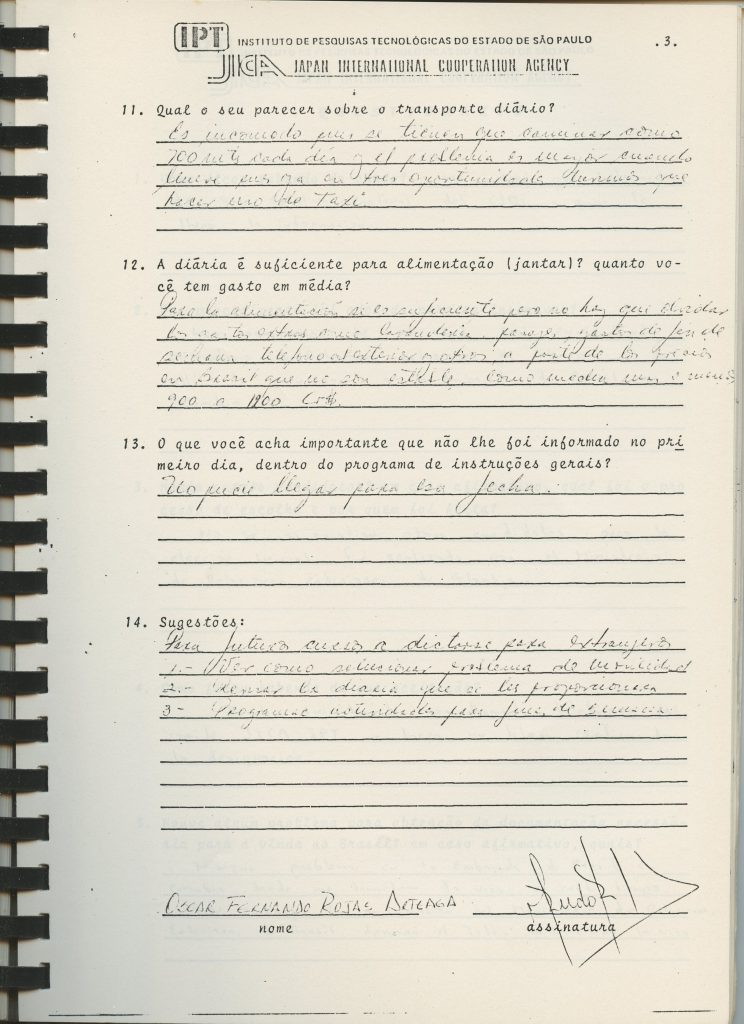 IPT INSTITUTO DE PESQUISAS TECNOLÓGICAS DO ESTADO DE SÃO PAULO .3.
JICA JAPAN INTERNATIONAL COOPERATION AGENCY
11. Qual o seu parecer sobre o transporte diário?
Es incomodo pues se tienen que caminar como
700 mts cada día y el problema es mayor cuando
llueve pues ya en tres oportunidades tuvimos que
hacer uso de Taxi.
12. A diária é suficiente para alimentação (jantar)? quanto vo-
cê tem gasto em média?
Para la alimentación si es suficiente pero no hay que olvidar
los gastos extras como lavandería, pasajes, gastos de fin de
semana, telefono al exterior y otros a parte de los precios
en Brasil que no son estable, como media mas o menos
900 a 1200 Cr$.
13. O que você acha importante que não lhe foi informado no pri
meiro dia, dentro do programa de instruções gerais?
No pude llegar para esa fecha.
14. Sugestões:
Para futuros cursos a dictarse para extranjeros
1.- Ver como solucionar problema de movilidad
2.- la diaria que se les proporciona
3- Programar actividades para fines de semana
OSCAR FERNANDO ROJAS ARTEAGA
nome assinatura